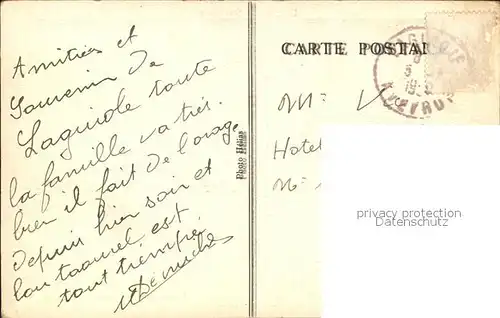 Amitiés et
Souvenir de
Laguiole toute
la famille va très
bien il fait de l'orage
depuis hier soir et
tout est
tout trempé
CARTE POSTAL
Mr V
Hotel
Photo Hélias
privacy protection
Datenschutz